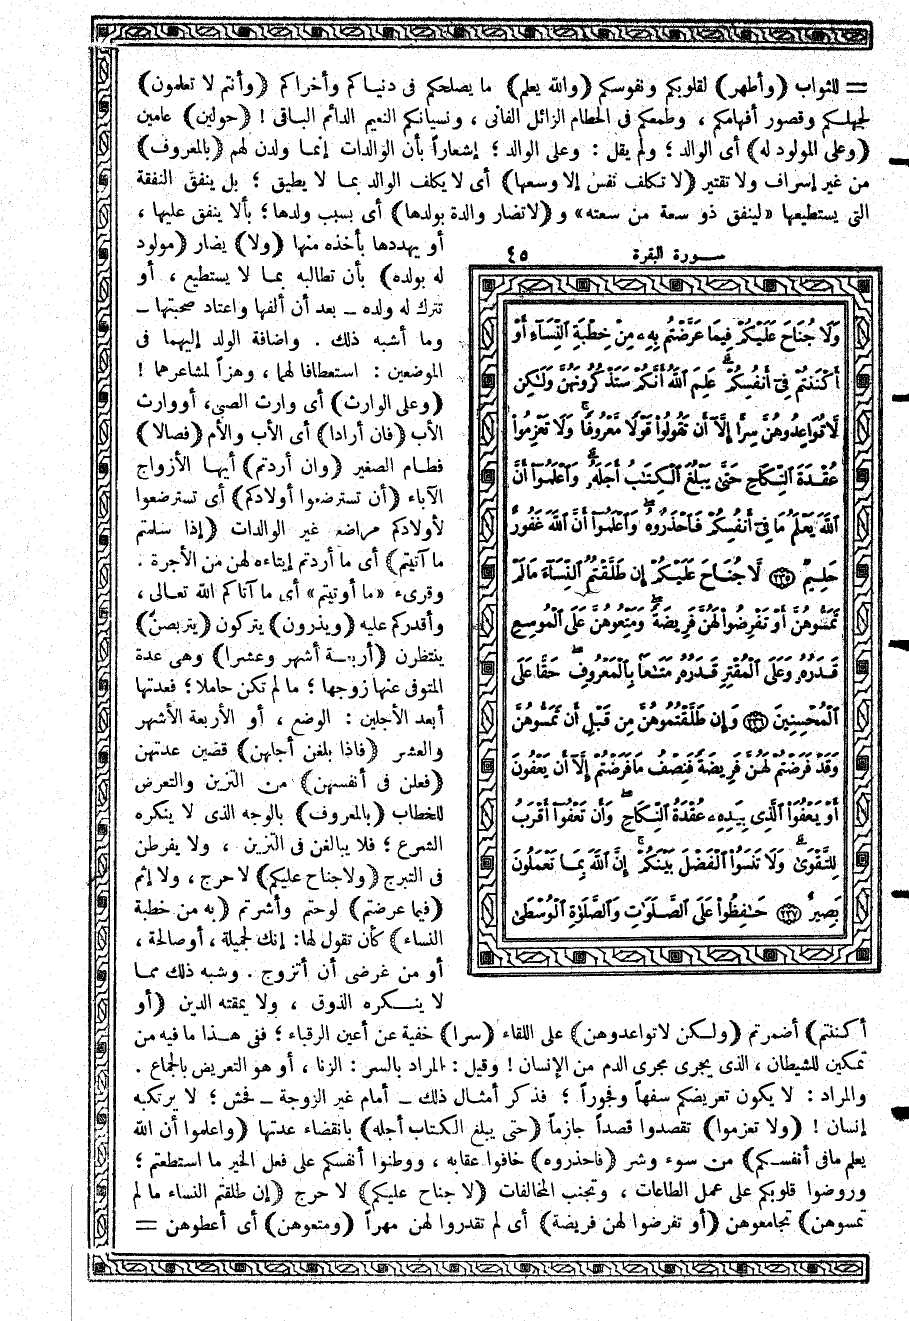 = للثواب (وأطهر) لقلوبكم ونفوسكم (والله يعلم) ما يصلحكم فى دنياكم وأخراكم (وأنتم لا تعلمون)
لجهلكم وقصور أفهامكم ، وطمعكم فى الحطام الزائل الفانى ، ونسيانكم النعيم الدائم الباقى ! (حولين) عامين
(وعلى المولود له) أى الوالد ؛ ولم يقل : وعلى الوالد ؛ إشعاراً بأن الوالدات إنما ولدن لهم (بالمعروف)
من غير إسراف ولا تقتير (لا تكلف نفس إلا وسعها) أى لا يكلف الوالد بما لا يطيق ؛ بل ينفق النفقة
التى يستطيعها «لينفق ذو سعة من سعته» و (لاتضار والدة بولدها) أى بسبب ولدها ؛ بألا ينفق عليها ،
أو يهددها بأخذه منها (ولا) يضار (مولود
له بولده) بأن تطالبه بما لا يستطيع ، أو
تترك له ولده ــ بعد أن ألفها واعتاد صحبتها ــ
وما أشبه ذلك . واضافة الولد إليهما فى
الموضعين : استعطافا لهما ، وهزاً لمشاعرهما !
(وعلى الوارث) أى وارث الصبى، أووارث
الأب (فان أرادا) أى الأب والأم (فصالا)
فطام الصغير (وان أردتم) أيها الأزواج
الآباء (أن تسترضعوا أولادكم) أى تسترضعوا
لأولادكم مراضع غير الوالدات (إذا سلمتم
ما آتيتم) أى ما أردتم إيتاءه لهن من الأجرة .
وقرىء «ما أوتيتم» أى ما آتاكم الله تعالى ،
وأقدركم عليه (ويذرون) يتركون (يتربصن)
ينتظرن (أربعة أشهر وعشرا) وهى عدة
المتوفى عنها زوجها ؛ ما لم تكن حاملا ؛ فعدتها
أبعد الأجلين : الوضع ، أو الأربعة الأشهر
والعشر (فاذا بلغن أجلهن) قضين عدتهن
(فعلن فى أنفسهن) من التزين والتعرض
للخطاب (بالمعروف) بالوجه الذى لا ينكره
الشرع ؛ فلا يبالغن فى التزين ، ولا يفرطن
فى التبرج (ولاجناح عليكم) لا حرج ، ولا إثم
(فيما عرضتم) لوحتم وأشرتم (به من خطبة
النساء) كأن تقول لها: إنك لجميلة ، أوصالحة ،
أو من غرضى أن أتزوج . وشبه ذلك مما
لا ينكره الذوق ، ولا يمقته الدين (أو
سورة البقرة ٤٥
وَلَا جُنَاحَ عَلَيْكُمْ فِيمَا عَرَّضْتُم بِهِۦ مِنْ خِطْبَةِ ٱلنِّسَآءِ أَوْ
أَكْنَنتُمْ فِىٓ أَنفُسِكُمْ ۚ عَلِمَ ٱللَّهُ أَنَّكُمْ سَتَذْكُرُونَهُنَّ وَلَٰكِن
لَّا تُوَاعِدُوهُنَّ سِرًّا إِلَّآ أَن تَقُولُوا۟ قَوْلًا مَّعْرُوفًا ۚ وَلَا تَعْزِمُوا۟
عُقْدَةَ ٱلنِّكَاحِ حَتَّىٰ يَبْلُغَ ٱلْكِتَٰبُ أَجَلَهُۥ ۚ وَٱعْلَمُوٓا۟ أَنَّ
ٱللَّهَ يَعْلَمُ مَا فِىٓ أَنفُسِكُمْ فَٱحْذَرُوهُ ۚ وَٱعْلَمُوٓا۟ أَنَّ ٱللَّهَ غَفُورٌ
حَلِيمٌ ٢٣٥ لَّا جُنَاحَ عَلَيْكُمْ إِن طَلَّقْتُمُ ٱلنِّسَآءَ مَا لَمْ
تَمَسُّوهُنَّ أَوْ تَفْرِضُوا۟ لَهُنَّ فَرِيضَةً ۚ وَمَتِّعُوهُنَّ عَلَى ٱلْمُوسِعِ
قَدَرُهُۥ وَعَلَى ٱلْمُقْتِرِ قَدَرُهُۥ مَتَٰعًۢا بِٱلْمَعْرُوفِ ۖ حَقًّا عَلَى
ٱلْمُحْسِنِينَ ٢٣٦ وَإِن طَلَّقْتُمُوهُنَّ مِن قَبْلِ أَن تَمَسُّوهُنَّ
وَقَدْ فَرَضْتُمْ لَهُنَّ فَرِيضَةً فَنِصْفُ مَا فَرَضْتُمْ إِلَّآ أَن يَعْفُونَ
أَوْ يَعْفُوَا۟ ٱلَّذِى بِيَدِهِۦ عُقْدَةُ ٱلنِّكَاحِ ۚ وَأَن تَعْفُوٓا۟ أَقْرَبُ
لِلتَّقْوَىٰ ۚ وَلَا تَنسَوُا۟ ٱلْفَضْلَ بَيْنَكُمْ ۚ إِنَّ ٱللَّهَ بِمَا تَعْمَلُونَ
بَصِيرٌ ٢٣٧ حَٰفِظُوا۟ عَلَى ٱلصَّلَوَٰتِ وَٱلصَّلَوٰةِ ٱلْوُسْطَىٰ
أكننتم) أضمرتم (ولكن لاتواعدوهن) على اللقاء (سرا) خفية عن أعين الرقباء ؛ ففى هذا ما فيه من
تمكين للشيطان ، الذى يجرى مجرى الدم من الإنسان ! وقيل : المراد بالسر : الزنا ، أو هو التعريض بالجماع .
والمراد : لا يكون تعريضكم سفهاً وفجوراً ؛ فذكر أمثال ذلك ــ أمام غير الزوجة ــ فحش ؛ لا يرتكبه
إنسان ! (ولا تعزموا) تقصدوا قصداً جازماً (حتى يبلغ الكتاب أجله) بانقضاء عدتها (واعلموا أن الله
يعلم مافى أنفسكم) من سوء وشر (فاحذروه) خافوا عقابه ، ووطنوا أنفسكم على فعل الخير ما استطعتم ؛
وروضوا قلوبكم على عمل الطاعات ، وتجنب المخالفات (لا جناح عليكم) لا حرج (إن طلقتم النساء ما لم
تمسوهن) تجامعوهن (أو تفرضوا لهن فريضة) أى لم تقدروا لهن مهراً (ومتعوهن) أى أعطوهن =